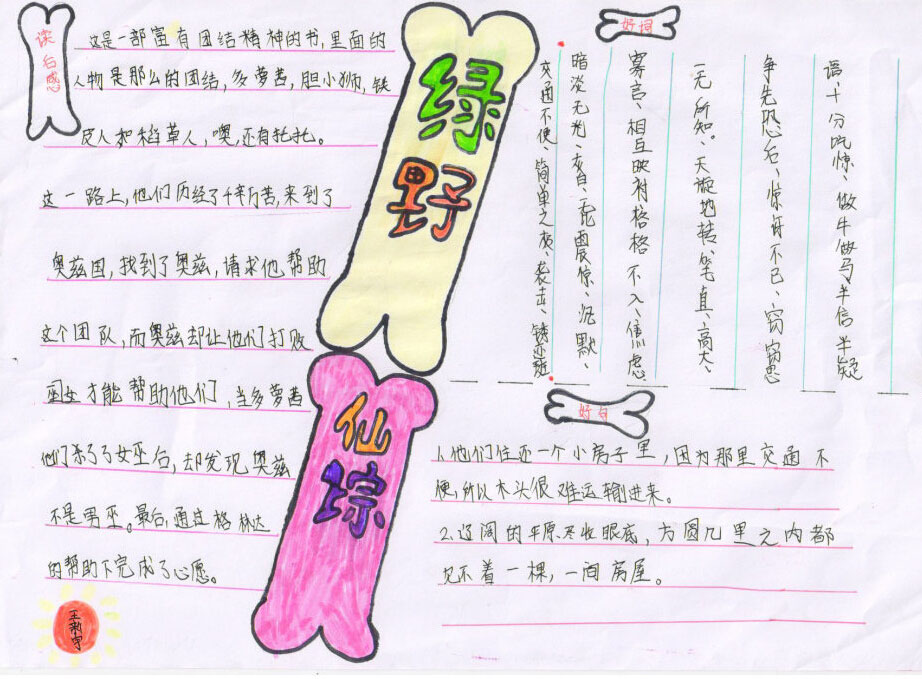 读后感
这是一部富有团结精神的书,里面的
人物是那么的团结,多萝茜,胆小狮,铁
皮人和稻草人,噢,还有托托。
这一路上,他们历经了千辛万苦,来到了
奥兹国,找到了奥兹,请求他帮助
这个团队,而奥兹却让他们打败
女才能帮助他们,当多萝茜
他们杀了女巫后,却发现奥兹
不是男巫。最后,通过格林达
的帮助下完成了心愿。
绿野
仙踪
好词
语、十分吃惊、做牛做马、半信半疑
争先恐后、惊讶不已、窃窃
一无所知、天旋地转、笔直、高大、
寡言、相互映衬、格格不入、焦虑
暗淡无光、灰白、震惊、沉默、
交通不便、简单之夜、袭击、
好句
1.他们住还一个小房子里,因为那里交通不
便,所以木头很难运输进来。
2.辽阔的平原尽收眼底,方圆几里之内都
见不着一棵,一间房屋。
王新宇